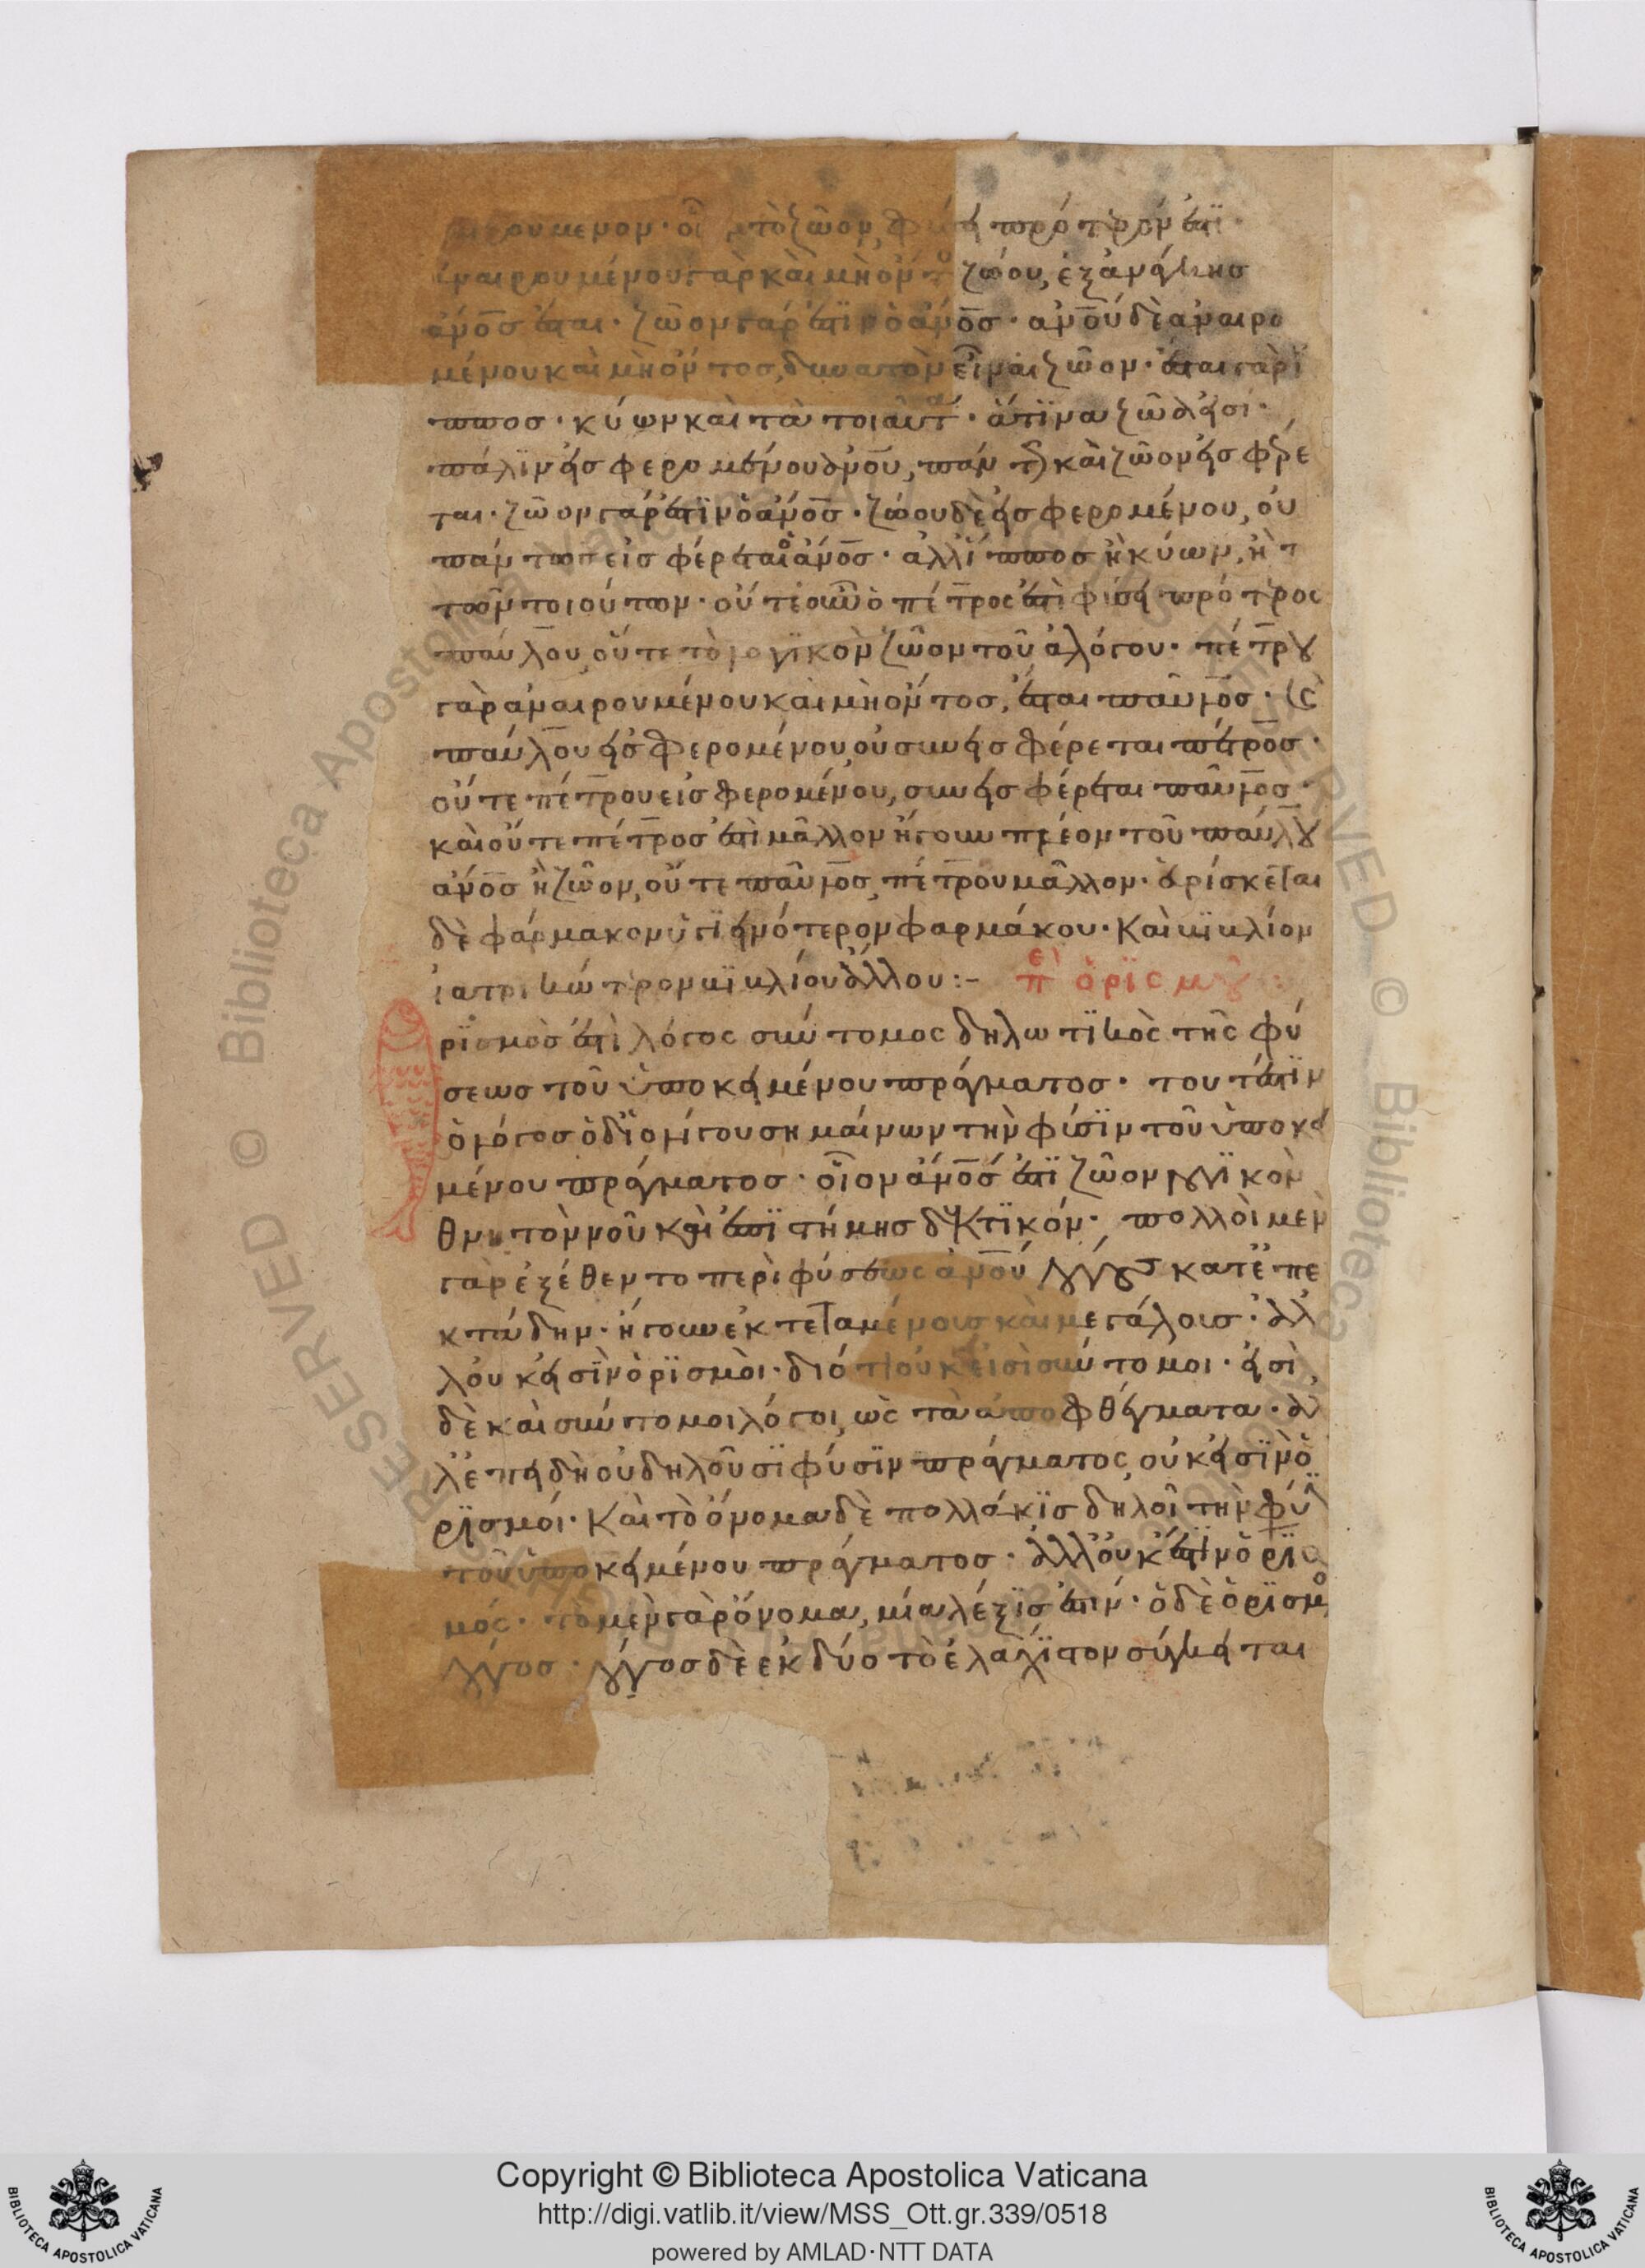 ρουμενον· οἷ τὸ ζῶον, φύ πρότερον ἐστὶ·
ἀναιρουμένου γὰρ καὶ μὴ ὄντο ζώου, ἐξ ἀνάγκησ
ἄνο̅σ ἔσται· ζῶον γάρ ἐστιν ὁ ἄνο̅σ· ανο̅υ δὲ ἀναιρο
μένου καὶ μὴ ὄντοσ, δυνατὸν εἶναι ζῶον· ἔσται γὰρ ἵ
πποσ· κύων καὶ τὰ τοιαῦτ· ἅτινα ζῶά εἰσι·
πάλιν εἰσφερομένου ἀνο̅υ, πάντ καὶ ζῶον εἰσφέρε
ται· ζῶον γάρ ἐστιν ὁ ἄνο̅σ· ζώου δὲ εἰσφερομένου, οὐ
πάντωσ εἰσφέρεται ὁ ἄνο̅σ· ἀλλ ἵπποσ ἢ κύων, ἤ τ
τῶν τοιούτων· οὔτε οὖν ὁ πέτρος ἐστὶ φύσει πρότερος
παύλου, οὔτε τὸ λογικὸν ζῶον τοῦ ἀλόγου· πέτρου
γὰρ ἀναιρουμένου καὶ μὴ ὄντοσ, ἔσται παῦλοσ· καὶ
παύλου εἰσφερομένου, οὐ συνεισφέρεται πέτροσ·
οὔτε πέτρου εἰσφερομένου, συνεισφέρεται παῦλοσ·
καὶ οὔτε πέτροσ ἐστὶ μᾶλλον ἤγουν πλέον τοῦ παύλου
ἄνο̅σ ἢ ζῶον, οὔτε παῦλοσ, πέτρου μᾶλλον· εὑρίσκεται
δὲ φάρμακον ὑγιεινότερον φαρμάκου· Καὶ βιβλίον
ἰατρικώτερον βιβλίου ἄλλου:– πε̅ὶ ὁρισμοῦ:
ρισμὸσ ἐστὶ λόγος σύντομος δηλωτικὸς τῆς φύ
σεωσ τοῦ ὑποκειμένου πράγματοσ· τουτέστιν
ὁ λόγοσ ὁ δι᾽ ὀλίγου σημαίνων τὴν φύσιν τοῦ ὑποκει
μένου πράγματοσ· οἷον ἄνο̅σ ἐστὶ ζῶον λογικὸν
θνητὸν νοῦ καὶ ἐπιστήμησ δεκτικόν· πολλοὶ μὲν
γὰρ ἐξέθεντο περὶ φύσεως ἀνο̅υ λόγουσ κατ᾽ ἐπε
κτάδην· ἤγουν ἐκτεταμένοισ καὶ μεγάλοισ· ἀλ
λ᾽ οὐκ εἰσὶν ὁρισμοὶ· διότι οὐκ εἰσὶ σύντομοι· εἰσὶ
δὲ καὶ σύντομοι λόγοι, ὡς τὰ ἀποφθέγματα· ἀλ
λ᾽ ἐπειδὴ οὐ δηλοῦσι φύσιν πράγματος, οὐκ εἰσὶν ὁ
ρισμοί· Καὶ τὸ ὄνομα δὲ πολλάκισ δηλοῖ τὴν φύσι
τοῦ ὑποκειμένου πράγματοσ· ἀλλ᾽ οὐκ ἔστιν ὁρισ
μός· τὸ μὲν γὰρ ὄνομα, μία λέξισ ἐστίν· ὁ δὲ ὁρισμὸ
λόγοσ· λόγοσ δὲ ἐκ δύο τὸ ἐλάχιστον σύγκειται
Copyright © Biblioteca Apostolica Vaticana
http://digi.vatlib.it/view/MSS_Ott.gr.339/0518
powered by AMLAD·NTT DATA